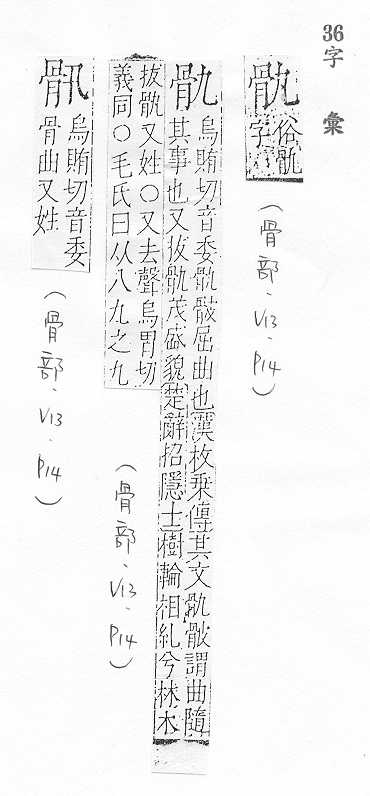 36
字彙
骩
俗骫
字
(骨部.V13.P14)
骫
烏賄切音委骫骳屈曲也漢枚乗傳其文骫骳謂曲隨
其事也又拔骫茂盛貌楚辭招隱士樹輪相糺兮林木
拔骫又姓○又去聲烏胃切
義同○毛氏曰从八九之九
(骨部.V13.P14)
烏賄切音委
骨曲又姓
(骨部.V13.P14)